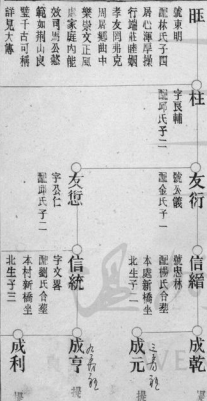 旺
號東明
配林氏子四
居心渾厚操
行端莊睦姻
孝友罔弗克
周居鄉曲中
樂崇文正風
處家庭內能
效司馬公懿
範如荊山良
璧千古可稱
詳見大傳
柱
字良輔
配邱氏子二
友衍
號公儀
配金氏子一
友愆
字公仁
配邱氏子二
信縉
號忠林
配楊氏合塟
本處新橋坐
北生子二
信統
字文畧
配劉氏合塟
本村新橋坐
北生子三
成乾
成元
成亨
成利